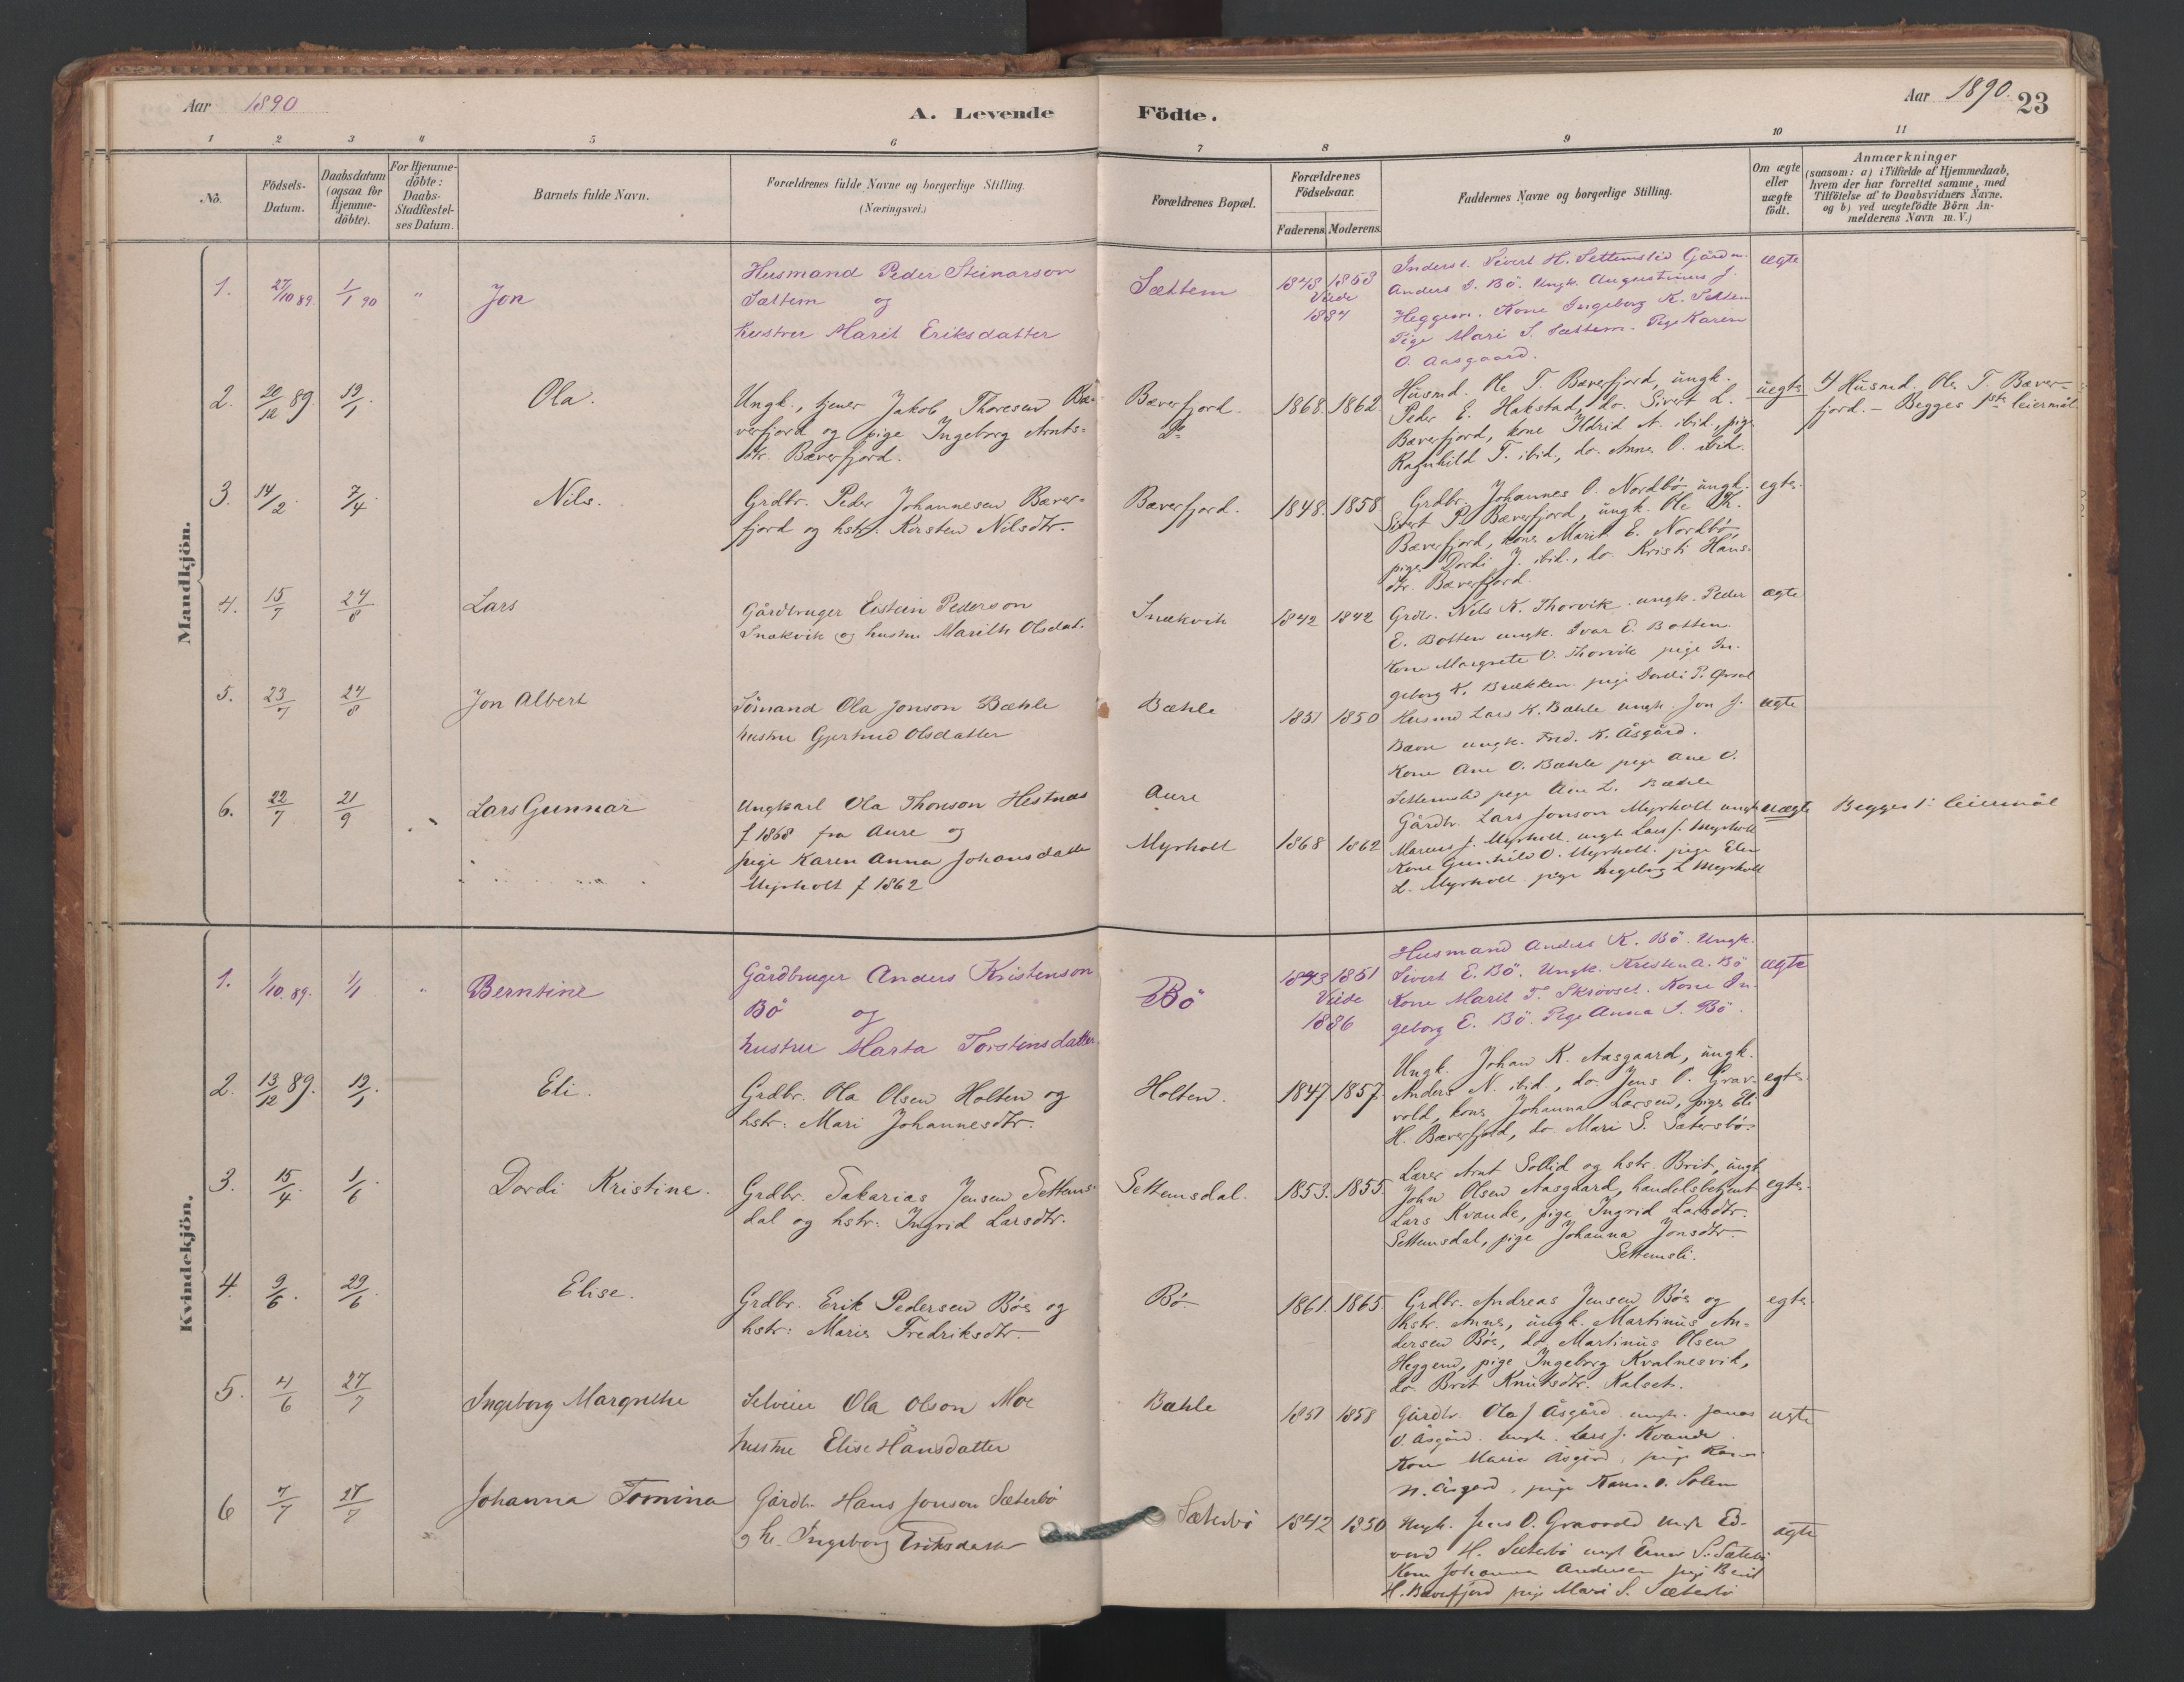 Aar 1890
A. Levende Födte.
Aar 1890. 23
1 2 3 4 5 6 7 8 9 10 11
No.
Födsels-Datum.
Daabsdatum (ogsaa for Hjemme-döbte).
For Hjemme-döbte: Daabs-Stadfæstel-ses Datum.
Barnets fulde Navn.
Forældrenes fulde Navne og borgerlige Stilling. (Næringsvei.)
Forældrenes Bopæl.
Forældrenes Födselsaar.
Faderens. Moderens.
Faddernes Navne og borgerlige Stilling.
Om ægte eller uægte födt.
Anmærkninger
(saasom: a) i Tilfælde af Hjemmedaab,
hvem der har forrettet samme, med
Tilföielse af to Daabsvidners Navne.
og b) ved uægtefödte Börn An-
melderens Navn m. V.)
Mandkjön.
1. 27/10 89 1/1 90 " Jon
Husmand Peder Steinarson
Sættem og
hustru Marit Eriksdatter
Sættem
1848 1853
Viede
1887
Inderst. Sivert H. Settemslid Gårdm.
Anders S. Bö. Ungk. Augustinus J.
Heggem. Kone Ingeborg K. Settem
Pige Mari S. Sættem. Pige Karen
O. Aasgaard.
ægte
2. 20/12 89. 19/1. Ola.
Ungk., tjener Jakob Thoresen Bæ-
verfjord og pige Ingeborg Arnts-
dtr. Bæverfjord.
Bæverfjord.
Do
1868. 1862
Husmd. Ole T. Bæverfjord, ungk.
Peder E. Hakstad, do. Sivert L.
Bæverfjord, kone Ildrid A. ibid., pige
Ragnhild T. ibid., do. Anne O. ibid.
uegte
Husmd. Ole T. Bæver-
fjord. – Begges 1ste leiermål.
3. 14/2. 7/4. Nils.
Grdbr. Peder Johannesen Bæver-
fjord og hstr. Kersten Nilsdtr.
Bæverfjord.
1848. 1858
Grdbr. Johannes O. Nordbö ungk.
Sivert P. Bæverfjord, ungk. Ole K.
Bæverfjord, kone Marit E. Nordbö
pige Dordi J. ibid., do. Kristi Hans-
dtr. Bæverfjord.
egte.
4. 15/7 24/8 Lars
Gårdbruger Eistein Pederson
Snekvik og hustru Marith Olsdat.
Snekvik
1842 1842
Grdb. Nils K. Thorvik. ungk. Peder
E. Botten ungk. Ivar E. Botten
Kone Margrete O. Thorvik pige In-
geborg K. Brekken. pige Dordi P.
ægte
5. 23/7 24/8 Jon Albert
Sömand Ola Jonson Bæhle
hustru Gjertrud Olsdatter
Bæhle
1851 1850
Husmd Lars K. Bæhle ungk. Jon J.
Bævre ungk. Fred. K. Åsgård.
Kone Ane O. Bæhle pige Ane O.
Settemslid pige Ane L. Bæhle
ægte
6. 22/7 21/9 Lars Gunnar
Ungkarl Ola Thonson Hestnæs
f 1868 fra Aure og
pige Karen Anna Johansdatter
Myrholt f 1862
Aure
Myrholt
1868 1862
Gårdbr. Lars Jonson Myrholt ungk
Marius J. Myrholt. ungk Lars J. Myrholt
Kone Gunhild O. Myrholt. pige Elen
L. Myrholt. pige Ingeborg L Myrholt
uægte
Begges 1. leiermål
Kvindekjön.
1. 1/10 89. 1/1 " Berntine
Gårdbruger Anders Kristenson
Bö og
hustru Marta Torstensdatter.
Bö
1843 1851
Viede
1886
Husmand Anders K. Bö. Ungk.
Sivert E. Bö. Ungk. Kristen A. Bö
Kone Marit T. Skrövset. Kone In-
geborg E. Bö. Pige Anna S. Bö.
ægte
2. 13/12 89. 19/1. Eli.
Grdbr. Ola Olsen Holten og
hstr: Mari Johannesdtr.
Holten.
1847. 1857.
Ungk. Johan K. Aasgaard, ungk.
Anders N. ibid., do. Jens O. Grav-
vold, kone Johanna Larsen, pige Eli
H. Bæverfjord, do. Mari S. Sætersbö.
egte.
3. 15/4. 1/6 Dordi Kristine.
Grdbr. Sakarias Jensen Settems-
dal og hstr: Ingrid Larsdtr.
Settemsdal.
1853. 1855.
Lærer Arnt Sollid og hstr. Brit, ungk
John Olsen Aasgaard, handelsbetjent
Lars Kvande, pige Ingrid Larsdtr.
Settemsdal, pige Johanna Jonsdtr.
Settemsli.
egte.
4. 9/6. 29/6. Elise.
Grdbr. Erik Pedersen Böe og
hstr: Marie Fredriksdtr.
Bö.
1861. 1865
Grdbr. Andreas Jensen Böe og
hstr. Anne, ungk. Martinus An-
dersen Böe, do. Martinus Olsen
Heggem, pige Ingeborg Kvalnesvik,
do. Brit Knutsdtr. Kalset.
egte.
5. 4/6 27/7 Ingeborg Margrethe
Selveier Ola Olson Moe
hustru Elise Hansdatter
Bæhle
1851 1858
Gårdbr. Ola J Åsgård. ungk. Jonas
O. Åsgård. ungk. Lars J. Kvande
Kone Maria Åsgård, pige
N. Åsgård, pige Karen O. Solem
ægte
6 7/7 27/7 Johanna Tomina
Gårdbr Hans Jonson Sæterbö
og h. Ingeborg Eriksdatter
Sæterbö
1842 1850
Ungk. Jens O. Gravvold ungk Ed-
vard H. Sæterbö ungk Einar S. Sæterbö
Kone Johanna Andersen pige Berit
H. Bæverfjord pige Mari S. Sæterbö
ægte